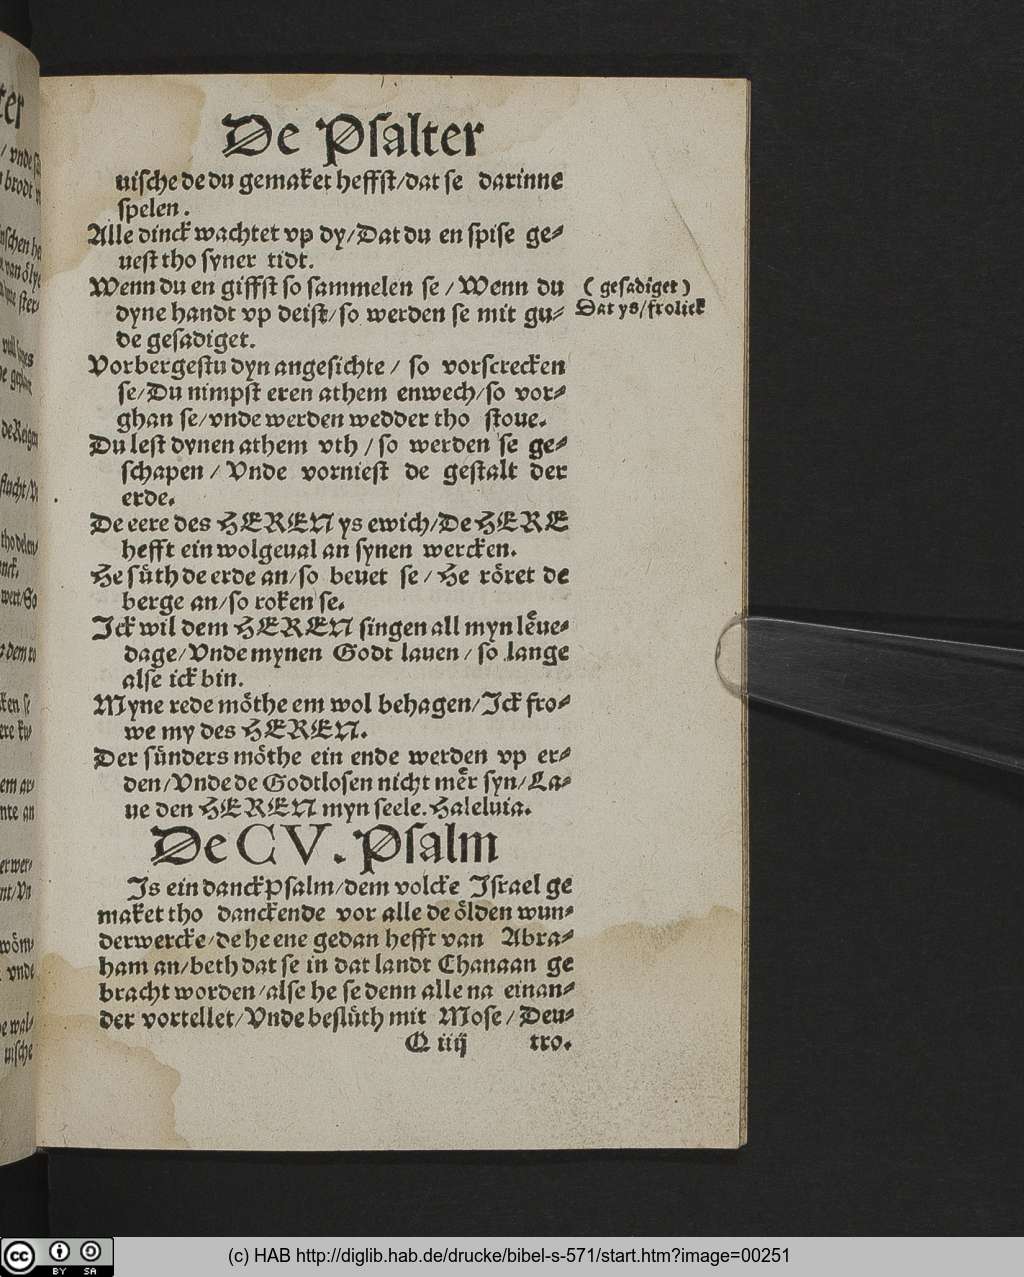 De Psalter
uische de du gemaket heffst/dat se darinne
spelen.
Alle dinck wachtet vp dy/Dat du en spise ge⸗
uest tho syner tidt.
Wenn du en giffst so sammelen se/Wenn du
dyne handt vp deist/so werden se mit gu⸗
de gesadiget.
( gesadiget )
Dat ys/frolick
Vorbergestu dyn angesichte/ so vorscrecken
se/Du nimpst eren athem enwech/so vor⸗
ghan se/vnde werden wedder tho stoue.
Du lest dynen athem vth/so werden se ge⸗
schapen/Vnde vorniest de gestalt der
erde.
De eere des HEREN ys ewich/De HERE
hefft ein wolgeual an synen wercken.
He suͤth de erde an/so beuet se/He roͤret de
berge an/so roken se.
Ick wil dem HEREN singen all myn leͤue⸗
dage/Vnde mynen Godt lauen/so lange
alse ick bin.
Myne rede moͤthe em wol behagen/Ick fro⸗
we my des HEREN.
Der suͤnders moͤthe ein ende werden vp er⸗
den/Vnde de Godtlosen nicht meͤr syn/La⸗
ue den HEREN myn seele.Haleluia.
De CV. Psalm
Is ein danckPsalm/dem volcke Israel ge
maket tho danckende vor alle de oͤlden wun⸗
derwercke/de he ene gedan hefft van Abra⸗
ham an/beth dat se in dat landt Chanaan ge
bracht worden/alse he se denn alle na einan⸗
der vortellet/Vnde besluͤth mit Mose/Deu⸗
Q iiij tro.
cc BY SA
(c) HAB http://diglib.hab.de/drucke/bibel-s-571/start.htm?image=00251